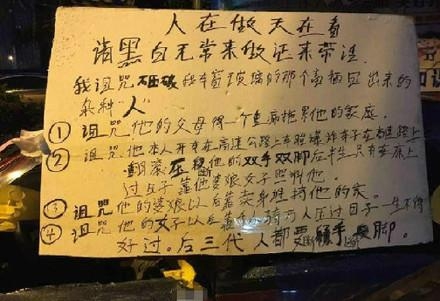 人在做天在看
请黑白无常来做证来带法
我诅咒砸破我车窗玻璃的那个畜牲留出来的
杂种"人"
① 诅咒他的父母得一个重病拖累他的家庭。
② 诅咒他本人开车在高速公路上车胎爆炸车子在高速路上
翻滚压穗他的双手双脚后半生只有在床上
过日子靠他婆娘女子照料他。
③ 诅咒他的婆娘以后靠卖身维持他的家
④ 诅咒他的女子以后被万人骑万人压过日子一生不得
好过。后三代人都要断手断脚。